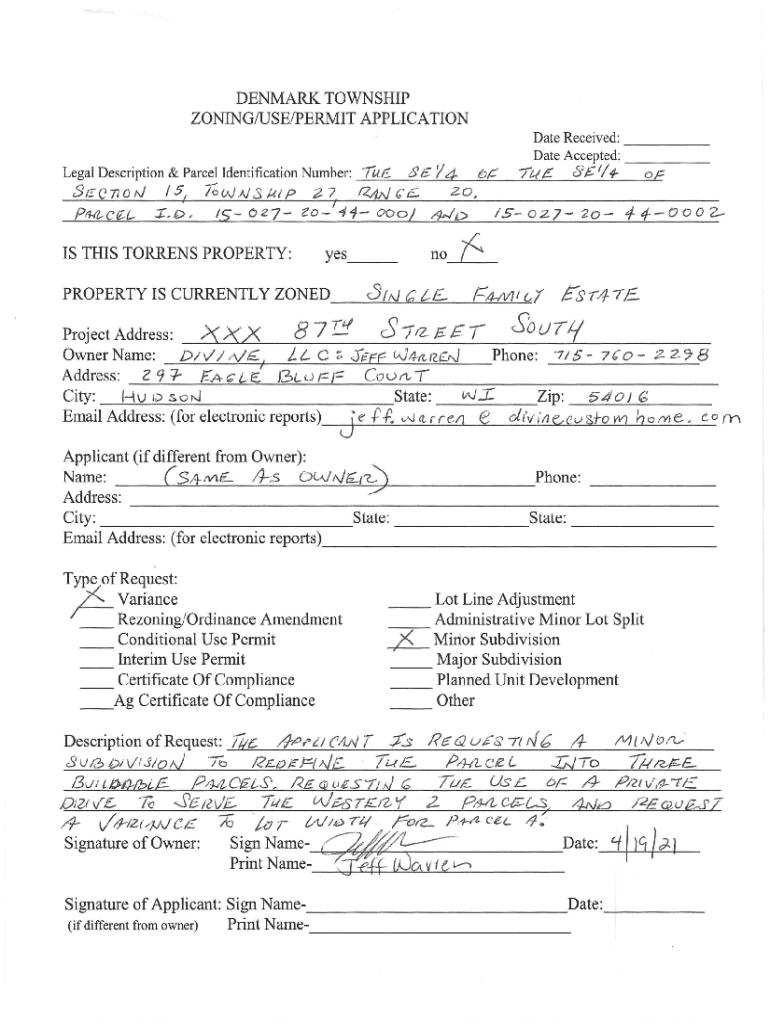 DENMARK TOWNSHIP
ZONING/USE/PERMIT APPLICATION
Date Received: ____________
Date Accepted: ____________
Legal Description & Parcel Identification Number: THE SE 1/4 OF THE SE 1/4 OF
SECTION 15, TOWNSHIP 27, RANGE 20.
PARCEL I.D. 15-027-20-44-0001 AND 15-027-20-44-0002
IS THIS TORRENS PROPERTY: yes______ no__X__
PROPERTY IS CURRENTLY ZONED SINGLE FAMILY ESTATE
Project Address: XXX 87TH STREET SOUTH
Owner Name: DIVINE, LLC : JEFF WARREN Phone: 715-760-2298
Address: 297 EAGLE BLUFF COURT
City: HUDSON State: WI Zip: 54016
Email Address: (for electronic reports) jeff.warren@divinecustomhome.com
Applicant (if different from Owner):
Name: (SAME AS OWNER) Phone: ____________
Address: ____________
City: ____________ State: ____________ State: ____________
Email Address: (for electronic reports)____________
Type of Request:
X Variance ____ Lot Line Adjustment
____ Rezoning/Ordinance Amendment ____ Administrative Minor Lot Split
____ Conditional Use Permit X Minor Subdivision
____ Interim Use Permit ____ Major Subdivision
____ Certificate Of Compliance ____ Planned Unit Development
____ Ag Certificate Of Compliance ____ Other
Description of Request: THE APPLICANT IS REQUESTING A MINOR
SUBDIVISION TO REDEFINE THE PARCEL INTO THREE
BUILDABLE PARCELS. REQUESTING THE USE OF A PRIVATE
DRIVE TO SERVE THE WESTERY 2 PARCELS, AND REQUEST
A VARIANCE TO LOT WIDTH FOR PARCEL A.
Signature of Owner: Sign Name-____________ Date: 4/19/21
Print Name- Jeff Warren
Signature of Applicant: Sign Name-____________ Date:____________
(if different from owner) Print Name-____________